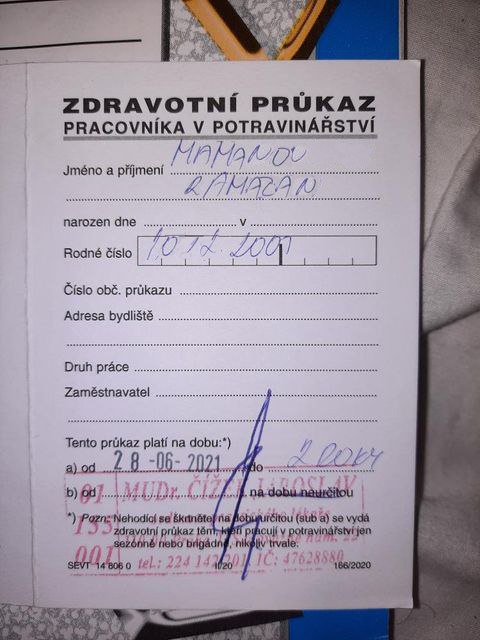 ZDRAVOTNÍ PRŮKAZ
PRACOVNÍKA V POTRAVINÁŘSTVÍ
Jméno a příjmení MAMANOV
RAMAZAN
narozen dne v
Rodné číslo 10 12. 2001
Číslo obč. průkazu
Adresa bydliště
Druh práce
Zaměstnavatel
Tento průkaz platí na dobu:*)
a) od 28 -06- 2021 do 2 ROKY
b) od na dobu neurčitou
01 MUDr. ČÍŽEK JAROSLAV
*) Pozn: Nehodící se škrtněte, na dobu určitou (sub a) se vydá
zdravotní průkaz těm, kteří pracují v potravinářství jen
155
sezónně nebo brigádně, nikoliv trvale.
001 tel.: 224 142 201 IČ: 47628880
SEVT 14 806 0 II/20 166/2020